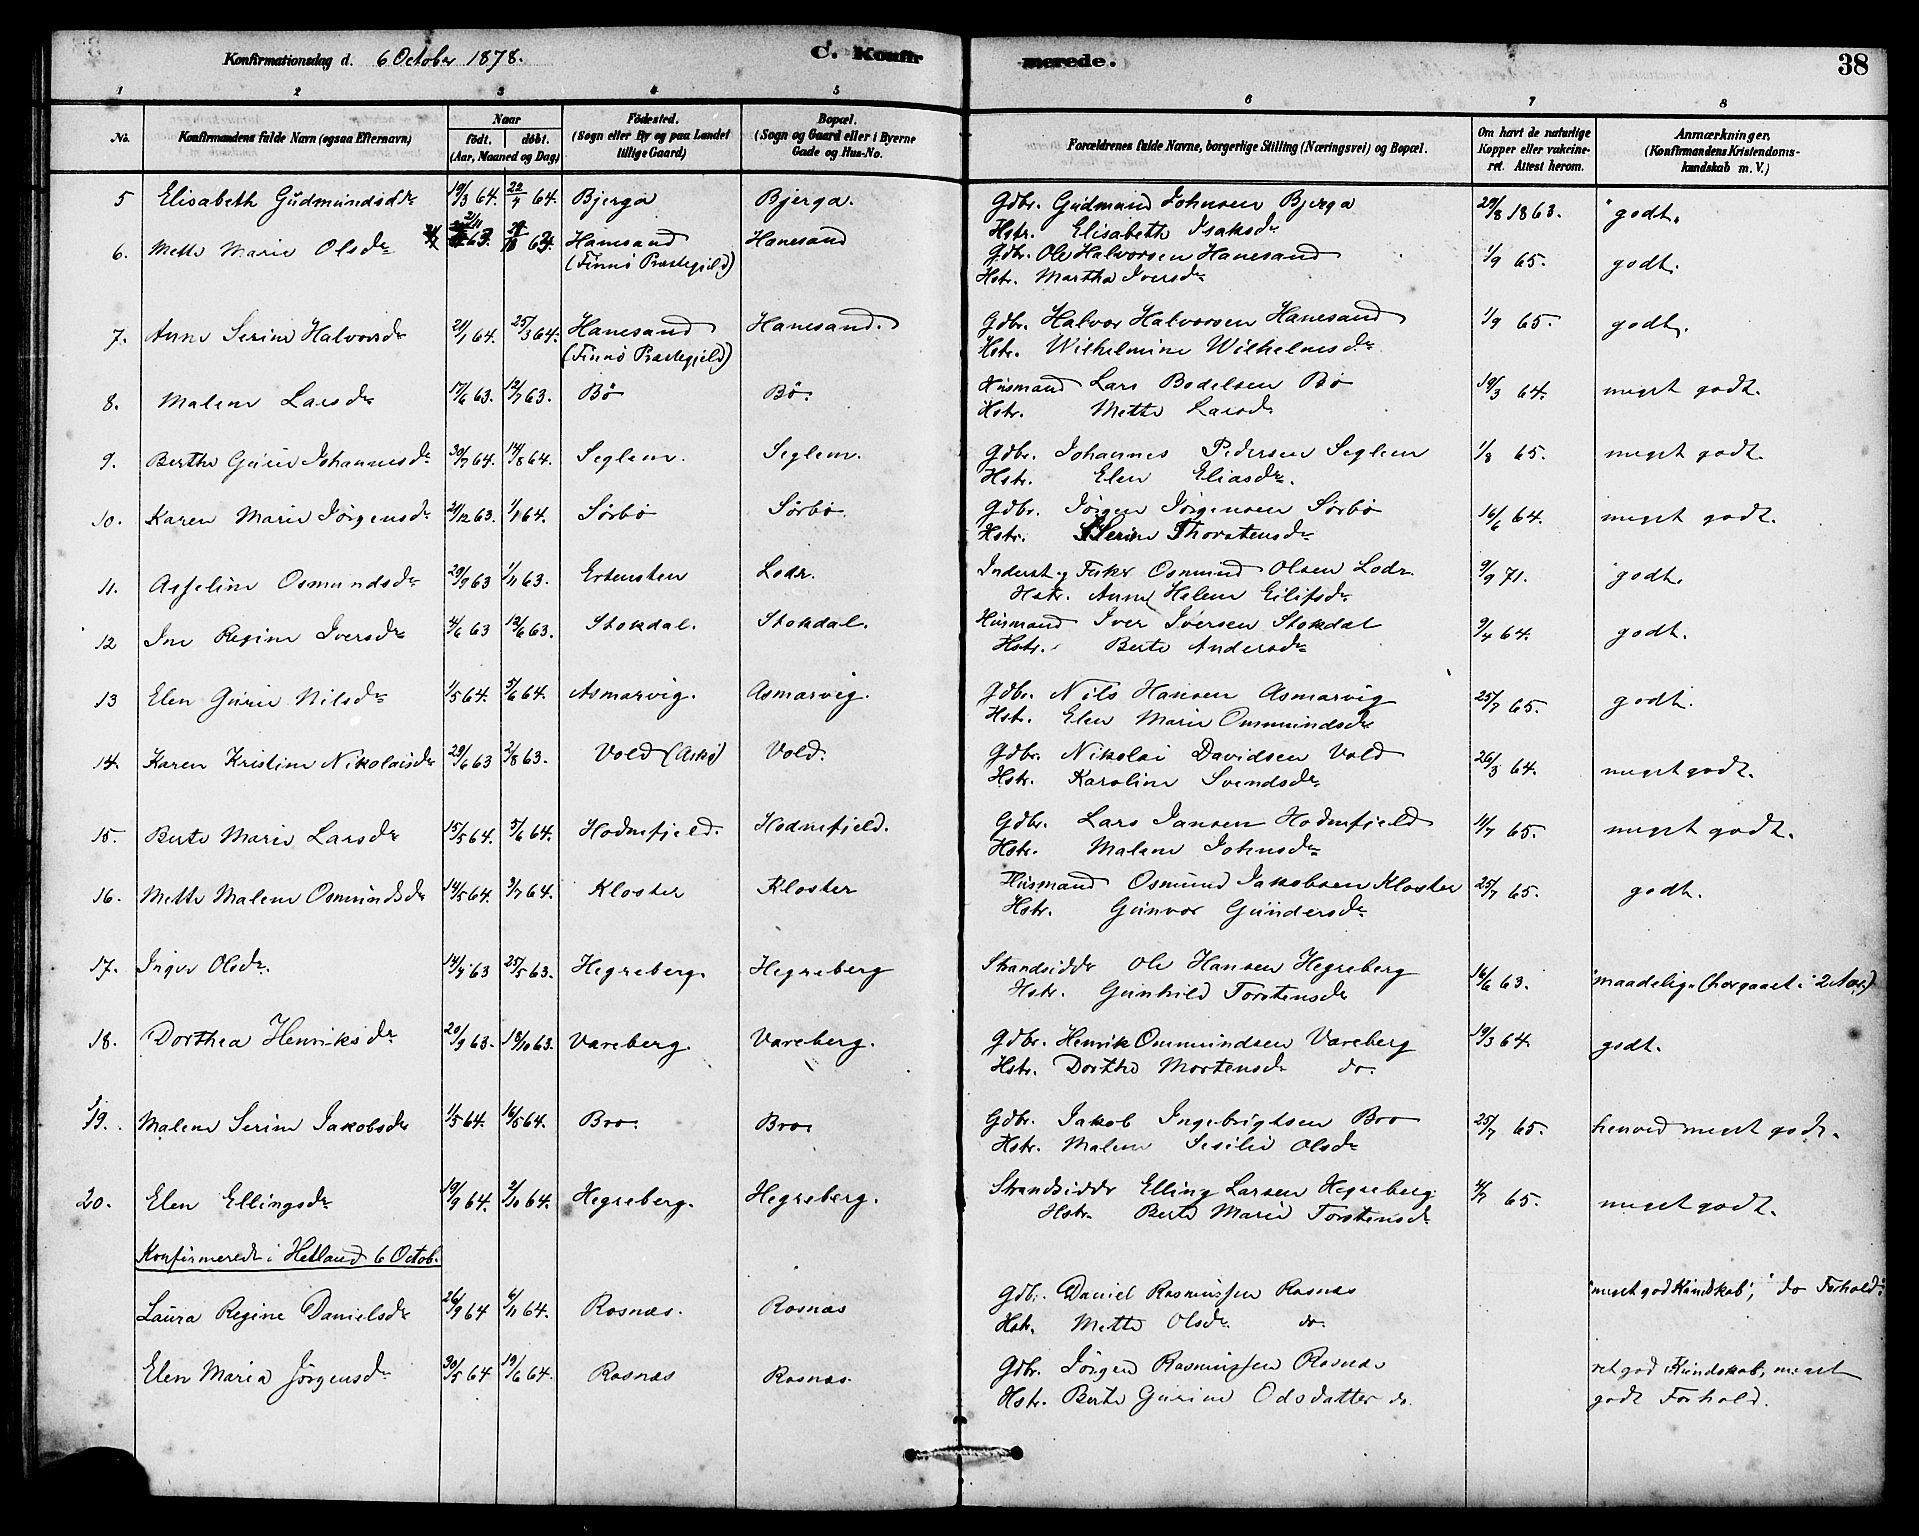 Konfirmationsdag d. 6 October 1878. C. Konfirmerede. 38
1 2 3 4 5 6 7 8
No. Konfirmandens fulde Navn (ogsaa Efternavn) Naar født. døbt. (Aar, Maaned og Dag) Fødested. (Sogn eller By og paa Landet tillige Gaard) Bopæl. (Sogn og Gaard eller i Byerne Gade og Hus-No. Forældrenes fulde Navne, borgerlige Stilling (Næringsvei) og Bopæl. Om havt de naturlige Kopper eller vakcineret. Attest herom. Anmærkninger. (Konfirmandens Kristendomskundskab m. V.)
5 Elisabeth Gudmundsdr 19/3 64. 22/4 64. Bjerga Bjerga. Gdbr. Gudmund Johnsen Bjerga 29/8 1863. godt.
Hstr. Elisabeth Isaksdr
6. Mette Marie Olsdr 63. Hanesand Hanesand Gdbr. Ole Halvorsen Hanesand 1/9 65. godt.
(Finnø Præstegjeld) Hstr. Martha Iversdr
7. Anne Serine Halvorsdr 21/1 64. 25/3 64. Hanesand Hanesand. Gdbr. Halvor Halvorsen Hanesand 1/9 65. godt.
(Finnø Præstegjeld) Hstr. Wilhelmine Wilhelmsdr
8. Malene Larsdr 17/6 63. 12/7 63. Bø Bø. Husmand Lars Bodelsen Bø 19/3 64. meget godt.
Hstr. Mette Larsdr
9. Berthe Gurie Johannesdr 30/7 64. 14/8 64. Seglem. Seglem. Gdbr. Johannes Pedersen Seglem 1/8 65. meget godt.
Hstr. Elen Eliasdr.
10. Karen Marie Jørgensdr 21/12 63. 1/1 64. Sørbø Sørbø. Gdbr. Jørgen Jørgensen Sørbø 16/6 64. meget godt.
Hstr. Serine Thorstensdr
11. Asseline Osmundsdr 29/9 63 1/11 63. Ertensten Lodr. Inderst og Fisker Osmund Olsen Lodr. 9/9 71. godt.
Hstr. Anne Helene Eilifsdr
12 Ine Regine Iversdr 4/6 63 12/6 63. Stokdal. Stokdal. Husmand Iver Iversen Stokdal 9/4 64. godt.
Hstr. Berte Andersdr
13 Elen Gurie Nilsdr 1/5 64. 5/6 64. Asmarvig. Asmarvig. Gdbr. Nils Hansen Asmarvig 25/7 65. godt.
Hstr. Elen Marie Ommundsdr
14. Karen Kristine Nikolaisdr 29/6 63 2/8 63. Vold (Askø) Vold. Gdbr. Nikolai Davidsen Vold 26/3 64. meget godt.
Hstr. Karoline Svendsdr
15. Berte Marie Larsdr 15/5 64. 5/6 64. Hodnefjeld. Hodnefjeld. Gdbr. Lars Jansen Hodnefjeld 11/7 65. meget godt.
Hstr. Malene Johnsdr
16. Mette Malene Osmundsdr 14/5 64. 3/7 64. Kloster Kloster Husmand Osmund Jakobsen Kloster 25/7 65. godt.
Hstr. Gunvor Gundersdr
17. Inger Olsdr. 14/4 63 25/5 63. Hegreberg. Hegreberg Strandsidder Ole Hansen Hegreberg 16/6 63. maadelig.
Hstr. Gunhild Torstensdr
18. Dorthea Henriksdr 20/9 63. 18/10 63. Vareberg. Vareberg. Gdbr. Henrik Ommundsen Vareberg 19/3 64. godt.
Hstr. Dorthe Mortensdr do.
19. Malene Serine Jakobsdr 1/5 64. 16/5 64. Bro. Bro. Gdbr. Jakob Ingebrigtsen Bro 25/7 65. henved meget godt.
Hstr. Malene Sesilie Olsdr
20. Elen Ellingsdr 19/9 64. 2/10 64. Hegreberg. Hegreberg. Strandsidder Elling Larsen Hegreberg 4/7 65. meget godt.
Hstr. Berte Marie Torstensdr
Konfirmerede i Hetland 6 Octob.
Laura Regine Danielsdr 26/9 64 6/11 64. Rosnæs. Rosnæs Gdb. Daniel Rasmussen Rosnæs "meget god Kundskab", "do Forhold".
Hstr. Mette Olsdr. do.
Elen Maria Jørgensdr 30/5 64 19/6 64. Rosnæs Rosnæs. Gdbr. Jørgen Rasmussen Rosnæs ret god Kundskab, meget
Hstr. Berte Gurine Odsdatter do. godt Forhold.